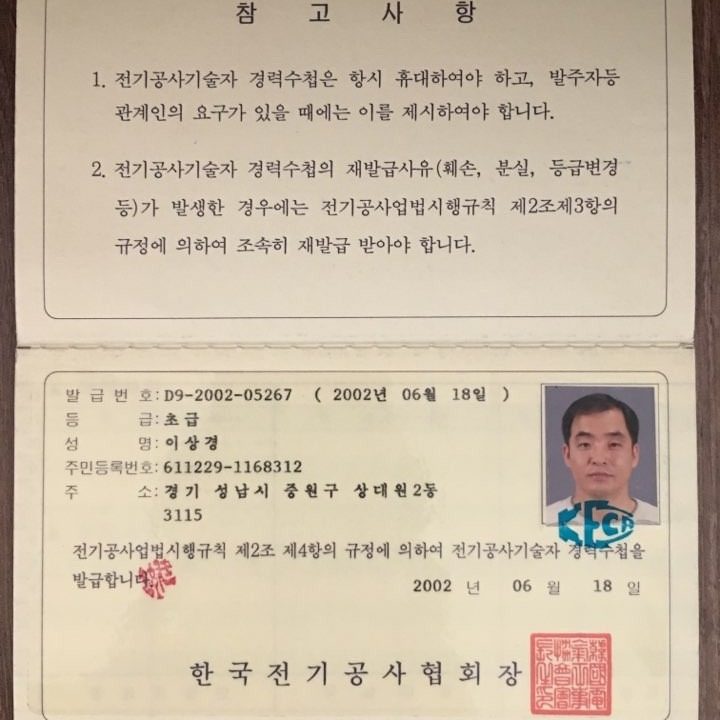 참 고 사 항
1. 전기공사기술자 경력수첩은 항시 휴대하여야 하고, 발주자등
관계인의 요구가 있을 때에는 이를 제시하여야 합니다.
2. 전기공사기술자 경력수첩의 재발급사유(훼손, 분실, 등급변경
등)가 발생한 경우에는 전기공사업법시행규칙 제2조제3항의
규정에 의하여 조속히 재발급 받아야 합니다.
발 급 번 호: D9-2002-05267 ( 2002년 06월 18일 )
등 급: 초급
성 명: 이상경
주민등록번호: 611229-1168312
주 소: 경기 성남시 중원구 상대원2동
3115
KECA
전기공사업법시행규칙 제2조 제4항의 규정에 의하여 전기공사기술자 경력수첩을
발급합니다.
2002 년 06 월 18 일
한국전기공사협회장